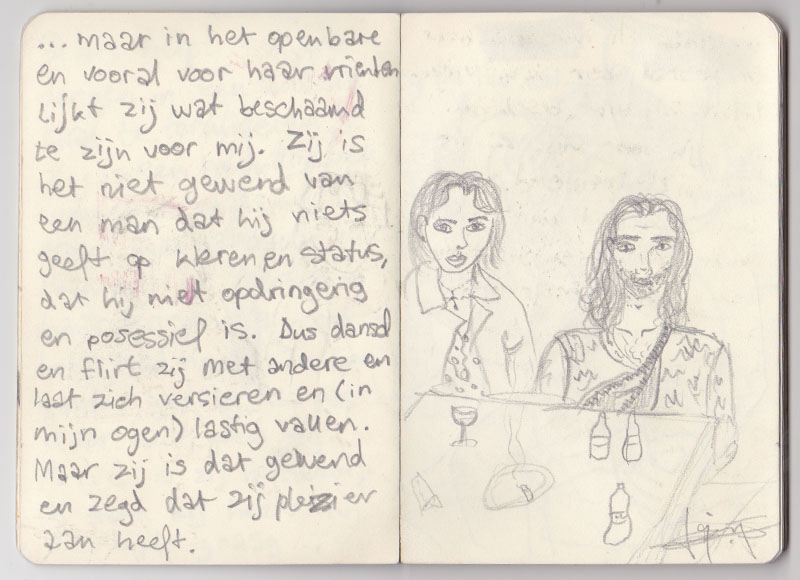 ... maar in het openbare
en vooral voor haar vrienten
lijkt zij wat beschaamd
te zijn voor mij. Zij is
het niet gewend van
een man dat hij niets
geeft op kleren en status,
dat hij niet opdringerig
en posessief is. Dus dansd
en flirt zij met andere en
laat zich versieren en (in
mijn ogen) lastig vallen.
Maar zij is dat gewend
en zegd dat zij pleizier
aan heeft.